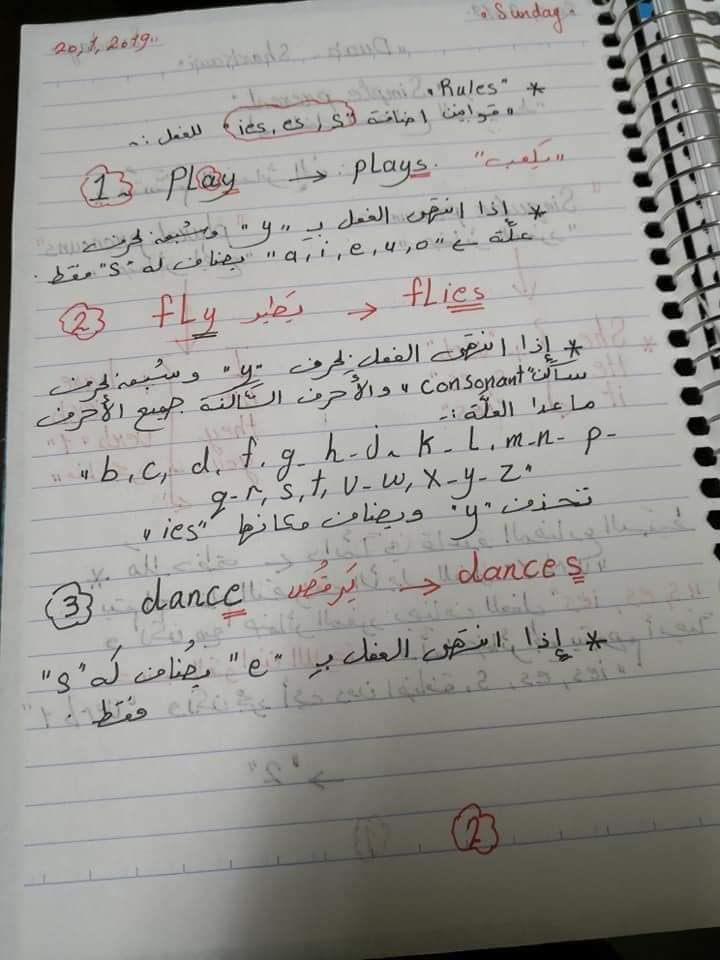 Sunday.
20, 1, 2019..
* "Rules"
"قوانين اضافة "ies, es, s للفعل :~
1. PLay → plays. "يَلعب"
* إذا انتهى الفعل بـ "y" وسُبِقَ بحرف
علّة → "a, i, e, u, o" يضاف له "s" فقط.
2 fLy يَطير → fLies
* إذا انتهى الفعل بحرف "y" وسُبِقَ بحرف
ساكن "consonant" والأحرف الساكنة جميع الأحرف
ما عدا العلّة :~
"b, c, d, f, g - h - j - k - L, m - n - p -
q - r, s, t, v - w, x - y - z"
تحذف "y" ويضاف مكانها "ies"
3 dance يَرقُص → dances
* إذا انتهى الفعل بِـ "e" يُضاف لَه "s"
فقط.
2